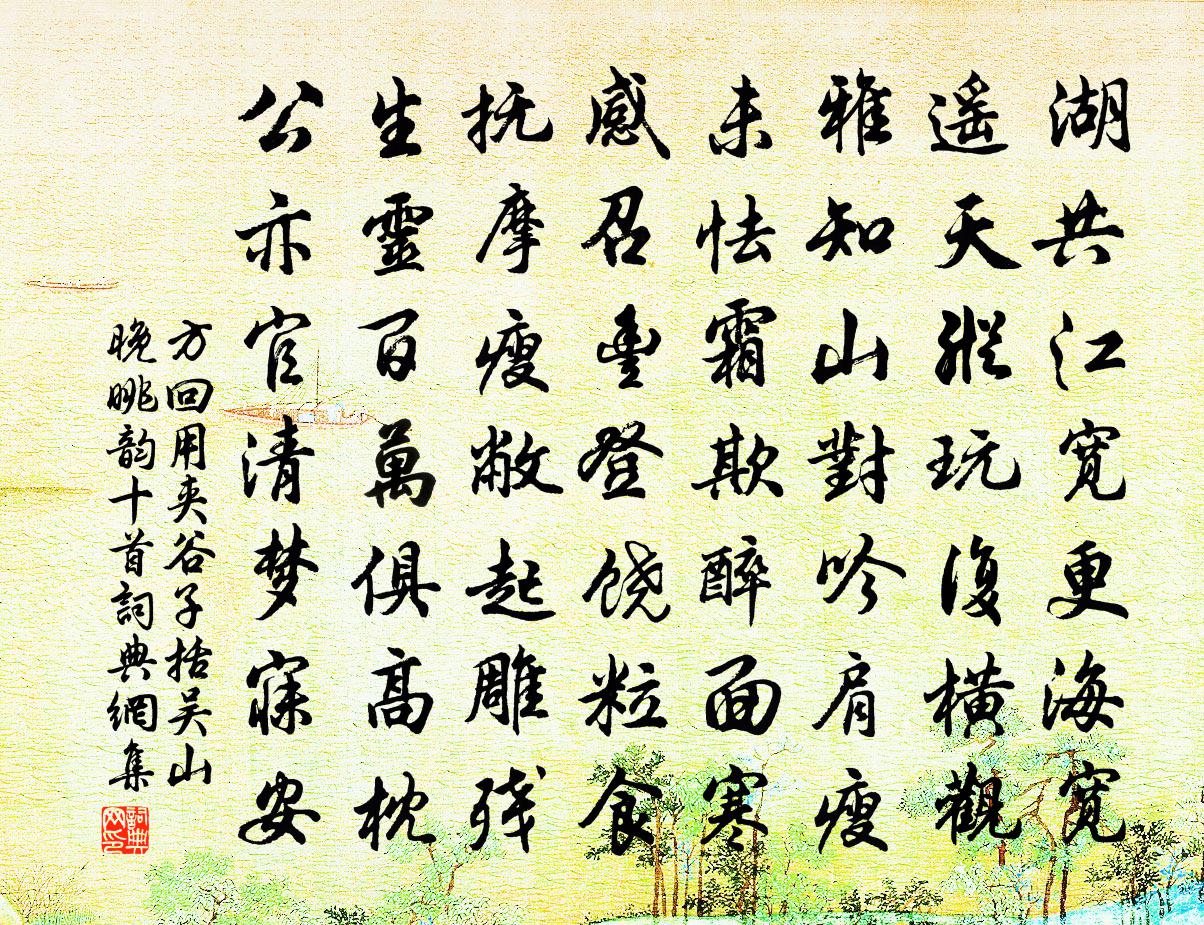 湖共江宽更海宽
遥天縱玩復横觀
雅知山對吟肩瘦
未怯霜欺醉面寒
感召豊登饶粒食
抚摩瘦敝起雕残
生靈百萬俱高枕
公亦官清梦寐安
方回用夹谷子括吴山
晚眺韵十首詞典網集
詞典
网印